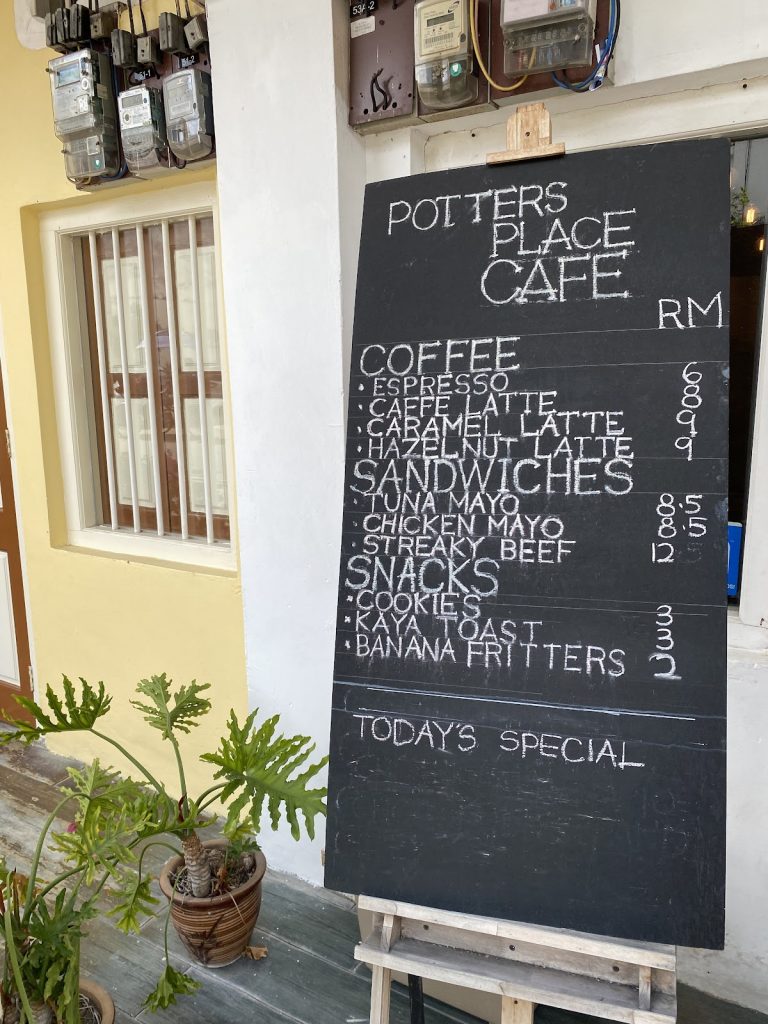 53A-2
51-1
51-2
POTTERS
PLACE
CAFE
RM
COFFEE
• ESPRESSO 6
• CAFFE LATTE 8
• CARAMEL LATTE 9
• HAZELNUT LATTE 9
SANDWICHES
• TUNA MAYO 8.5
• CHICKEN MAYO 8.5
• STREAKY BEEF 12
SNACKS
* COOKIES 3
* KAYA TOAST 3
* BANANA FRITTERS 2
TODAY'S SPECIAL